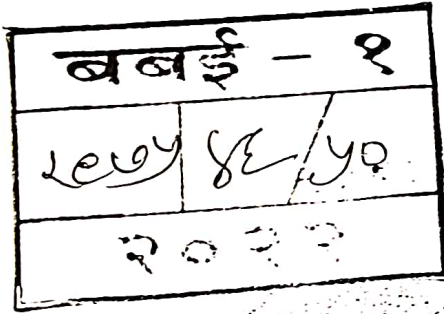 बबई - १
१८७५ ४६/५०
२०२२